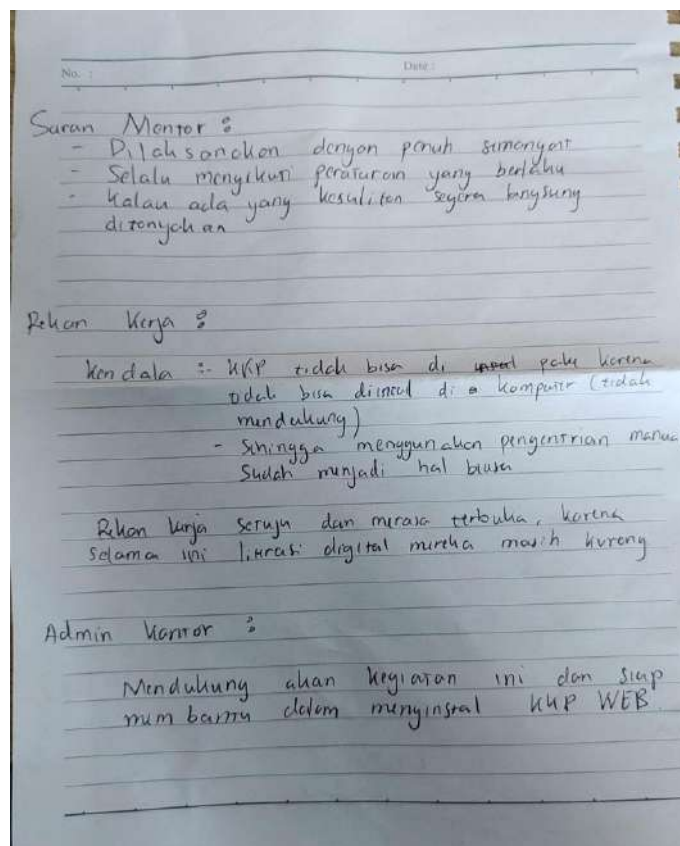 No. :
Date :
Saran Mentor :
- Dilaksanakan dengan penuh semangat
- Selalu mengikuti peraturan yang berlaku
- Kalau ada yang kesulitan segera langsung
ditanyakan
Rekan Kerja :
Kendala :- KKP tidak bisa di pake karena
tidak bisa diinstal di komputer (tidak
mendukung)
- Sehingga menggunakan pengentrian manua
Sudah menjadi hal biasa
Rekan kerja setuju dan merasa terbuka, karena
selama ini literasi digital mereka masih kurang
Admin Kantor :
Mendukung akan kegiatan ini dan siap
membantu dalam menginstal KKP WEB